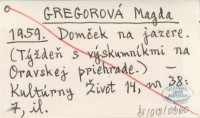 GREGOROVÁ Magda
1959. Domček na jazere.
(Týždeň s výskumníkmi na
Oravskej priehrade.) —
Kultúrny Život 14, nr 38:
7, il.